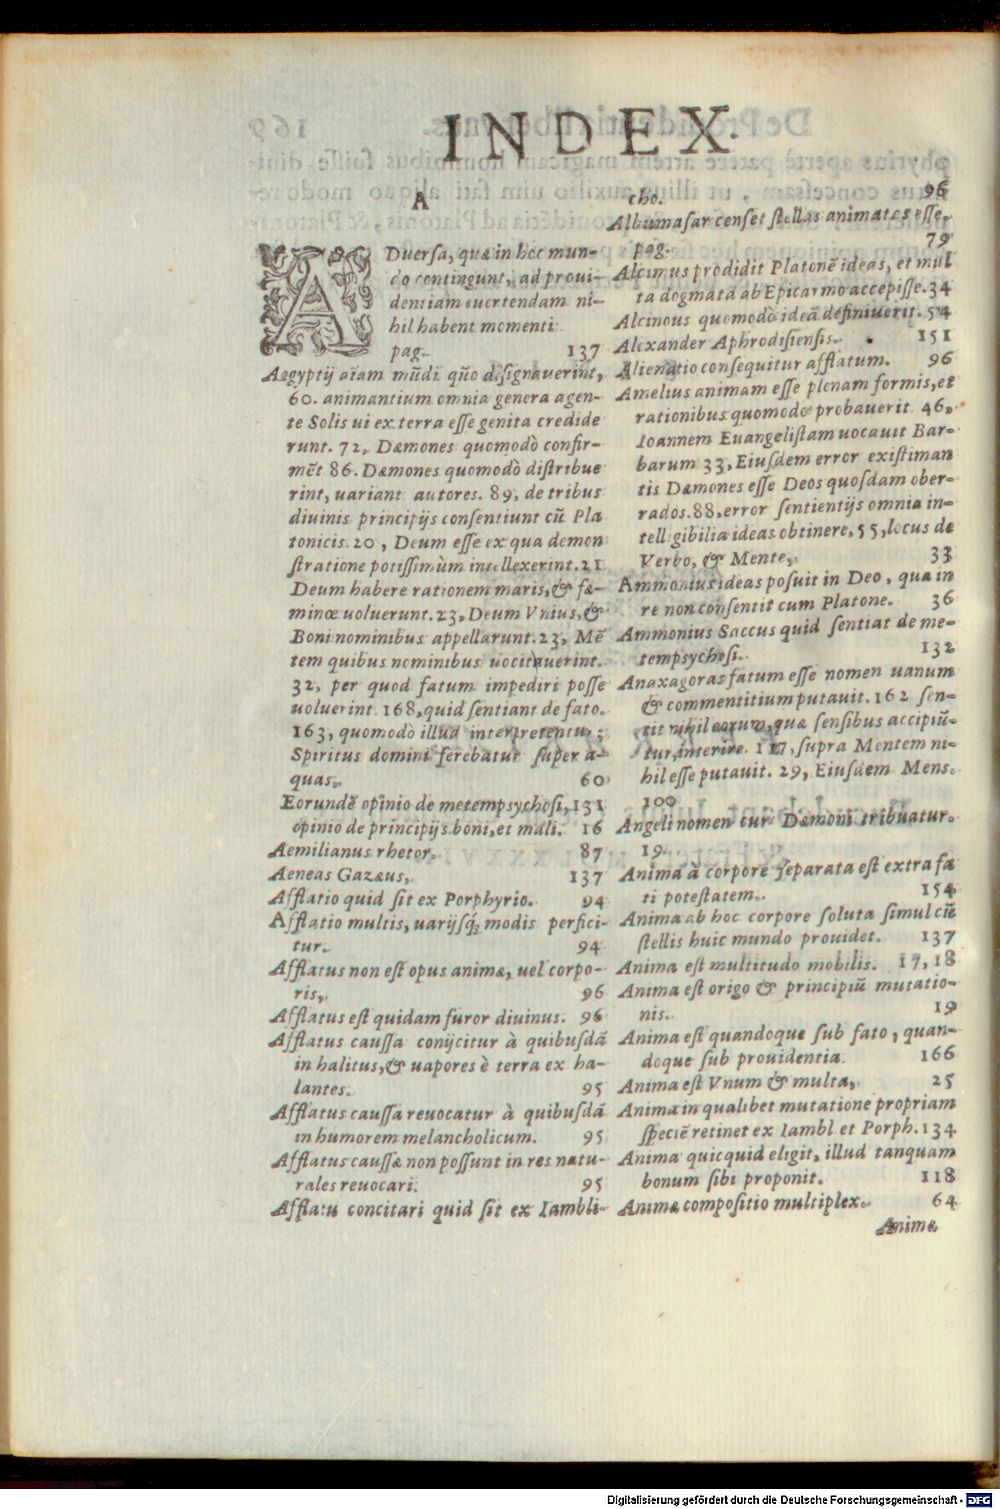 INDEX.
A
ADuersa, quæ in hoc mun-
do contingunt, ad proui-
dentiam euertendam ni-
hil habent momenti
pag. 137
Aegyptij aĩam mũdi qũo designauerint,
60. animantium omnia genera agen-
te Solis ui ex terra esse genita credide
runt. 72, Dæmones quomodò confir-
mẽt 86. Dæmones quomodò distribue
rint, uariant autores. 89, de tribus
diuinis principijs consentiunt cũ Pla
tonicis. 20, Deum esse ex qua demon
stratione potissimùm intellexerint. 21
Deum habere rationem maris, & fœ-
minæ uoluerunt. 23, Deum Vnius, &
Boni nominibus appellarunt. 23, Mẽ
tem quibus nominibus uocitauerint.
32, per quod fatum impediri posse
uoluerint. 168, quid sentiant de fato.
163, quomodò illud interpretentur;
Spiritus domini ferebatur super a-
quas. 60
Eorundẽ opinio de metempsychosi, 131
opinio de principijs boni, et mali. 16
Aemilianus rhetor. 87
Aeneas Gazæus. 137
Afflatio quid sit ex Porphyrio. 94
Afflatio multis, uarijsq́; modis perfici-
tur. 94
Afflatus non est opus animæ, uel corpo-
ris. 96
Afflatus est quidam furor diuinus. 96
Afflatus caussa conijcitur à quibusdã
in halitus, & uapores è terra ex ha-
lantes. 95
Afflatus caussa reuocatur à quibusdã
in humorem melancholicum. 95
Afflatus caussæ non possunt in res natu-
rales reuocari. 95
Afflatu concitari quid sit ex Iambli-
cho. 96
Albumasar censet stellas animatas esse.
pag. 79
Alcimus prodidit Platonẽ ideas, et mul
ta dogmata ab Epicarmo accepisse. 34
Alcinous quomodò ideã definiuerit. 54
Alexander Aphrodisiensis. 151
Alienatio consequitur afflatum. 96
Amelius animam esse plenam formis, et
rationibus quomodo probauerit 46,
Ioannem Euangelistam uocauit Bar-
barum 33, Eiusdem error existiman
tis Dæmones esse Deos quosdam ober-
rados. 88, error sentientis omnia in-
telligibilia ideas obtinere, 55, locus de
Verbo, & Mente, 33
Ammonius ideas posuit in Deo, qua in
re non consentit cum Platone. 36
Ammonius Saccus quid sentiat de me-
tempsychosi. 132
Anaxagoras fatum esse nomen uanum
& commentitium putauit. 162 sen-
tit nihil eorum, quæ sensibus accipiũ-
tur, interire. 117, supra Mentem ni-
hil esse putauit. 29, Eiusdem Mens.
100
Angeli nomen cur Dæmoni tribuatur.
19.
Anima à corpore separata est extra fa
ti potestatem. 154
Anima ab hoc corpore soluta simul cũ
stellis huic mundo prouidet. 137
Anima est multitudo mobilis. 17, 18
Anima est origo & principiũ mutatio-
nis. 19
Anima est quandoque sub fato, quan-
doque sub prouidentia. 166
Anima est Vnum & multa, 25
Anima in qualibet mutatione propriam
speciẽ retinet ex Iambl. et Porph. 134
Anima quicquid eligit, illud tanquam
bonum sibi proponit. 118
Animæ compositio multiplex. 64
Animæ
Digitalisierung gefördert durch die Deutsche Forschungsgemeinschaft - DFG